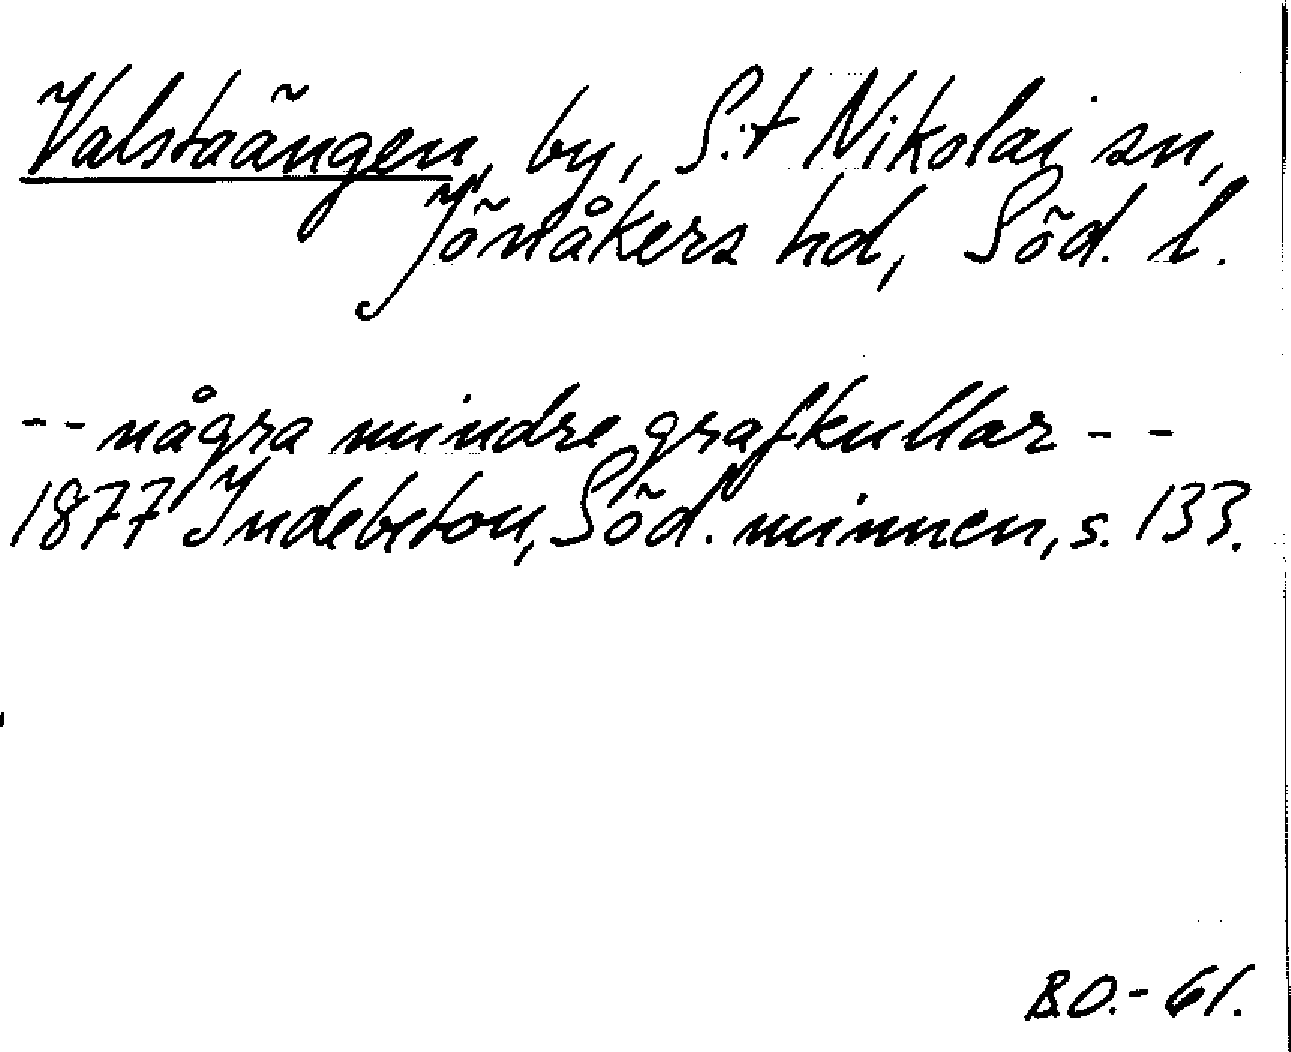 Valstaängen, by, S:t Nikolai sn,
Jönåkers hd, Söd. l.
-- några mindre grafkullar --
1877 Indebetou, Söd. minnen, s. 133.
B.O.-61.